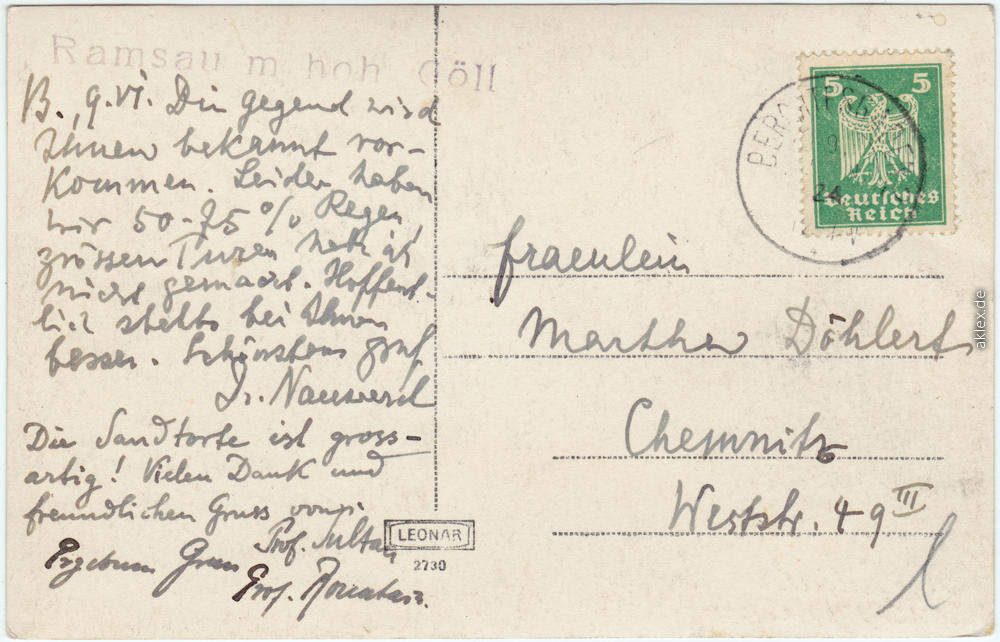 Ramsau m. hoh. Göll
B., 9.VI. Die Gegend wird
Ihnen bekannt vor-
kommen. Leider haben
wir 50-75% Regen
grössern Turen hab ich
nicht gemacht. Hoffent-
lich stehts bei Ihnen
besser. Schönsten Gruß
Dr.
Die Sandtorte ist gross-
artig! Vielen Dank und
freundlichen Gruss von
Prof. Sultan
Prof.
LEONAR
2730
5 5
Deutsches
Reich
BERCHTESGADEN
9
fraeulein
Marthe Döhlert
Chemnitz
Weststr. 49 III
aklex.de